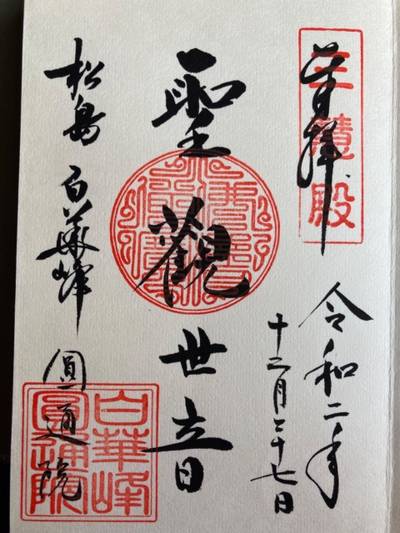 奉拝
三慧殿
令和二年
十二月二十七日
聖觀世音
松島 白華峰 圓通院
白華峰
圓通院